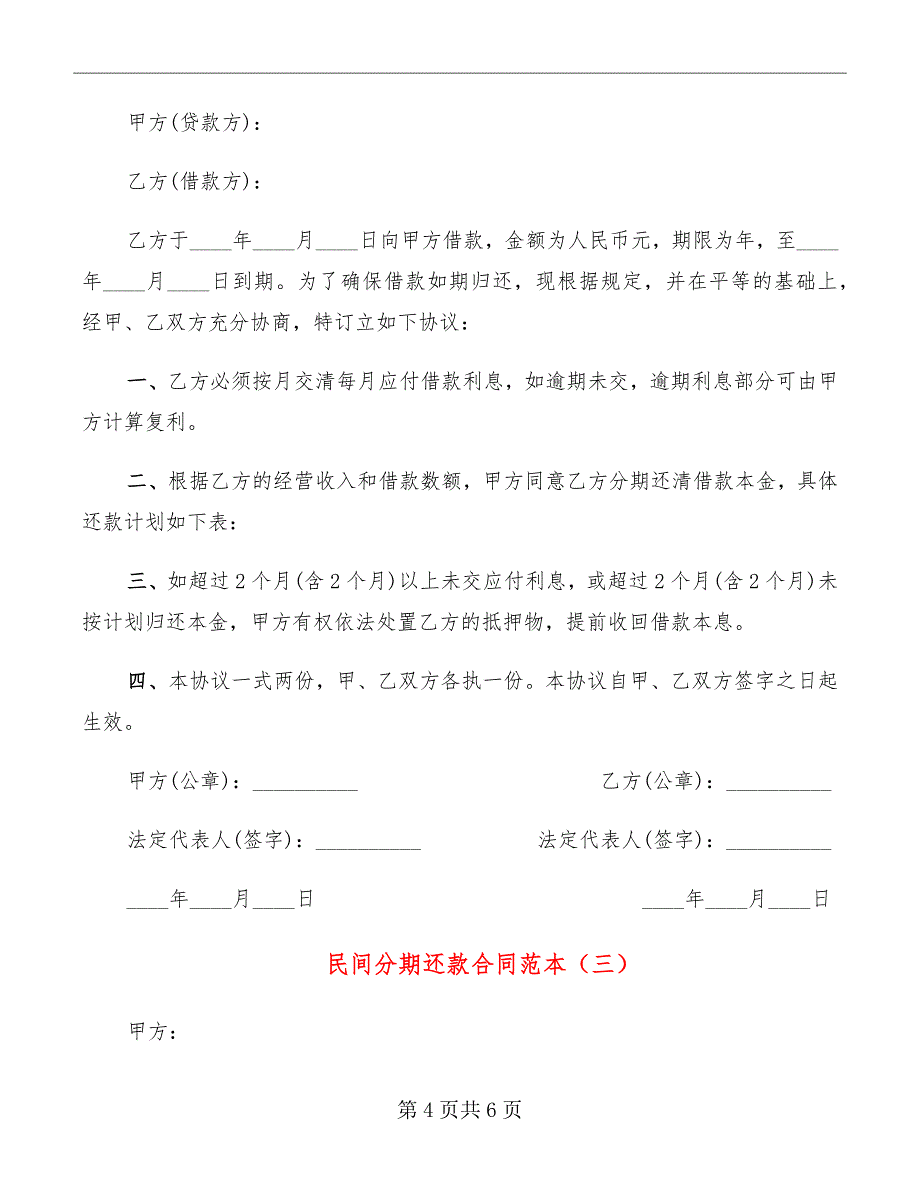 甲方(贷款方):
乙方(借款方):
乙方于____年____月____日向甲方借款，金额为人民币元，期限为年，至____
年____月____日到期。为了确保借款如期归还，现根据规定，并在平等的基础上，
经甲、乙双方充分协商，特订立如下协议:
一、乙方必须按月交清每月应付借款利息，如逾期未交，逾期利息部分可由甲
方计算复利。
二、根据乙方的经营收入和借款数额，甲方同意乙方分期还清借款本金，具体
还款计划如下表:
三、如超过2个月(含2个月)以上未交应付利息，或超过2个月(含2个月)未
按计划归还本金，甲方有权依法处置乙方的抵押物，提前收回借款本息。
四、本协议一式两份，甲、乙双方各执一份。本协议自甲、乙双方签字之日起
生效。
甲方(公章):__________ 乙方(公章):__________
法定代表人(签字):__________ 法定代表人(签字):__________
____年____月____日 ____年____月____日
民间分期还款合同范本（三）
甲方:
第 4 页共 6 页